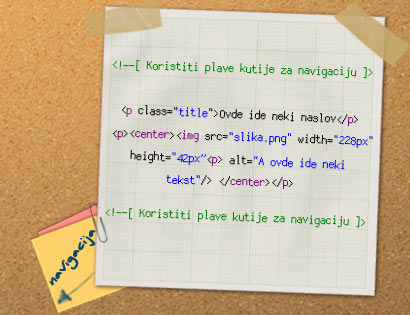 <!--[ Koristiti plave kutije za navigaciju ]>
<p class="title">Ovde ide neki naslov</p>
<p><center><img src="slika.png" width="228px"
height="42px"<p> alt="A ovde ide neki
tekst"/> </center></p>
<!--[ Koristiti plave kutije za navigaciju ]>
navigacija